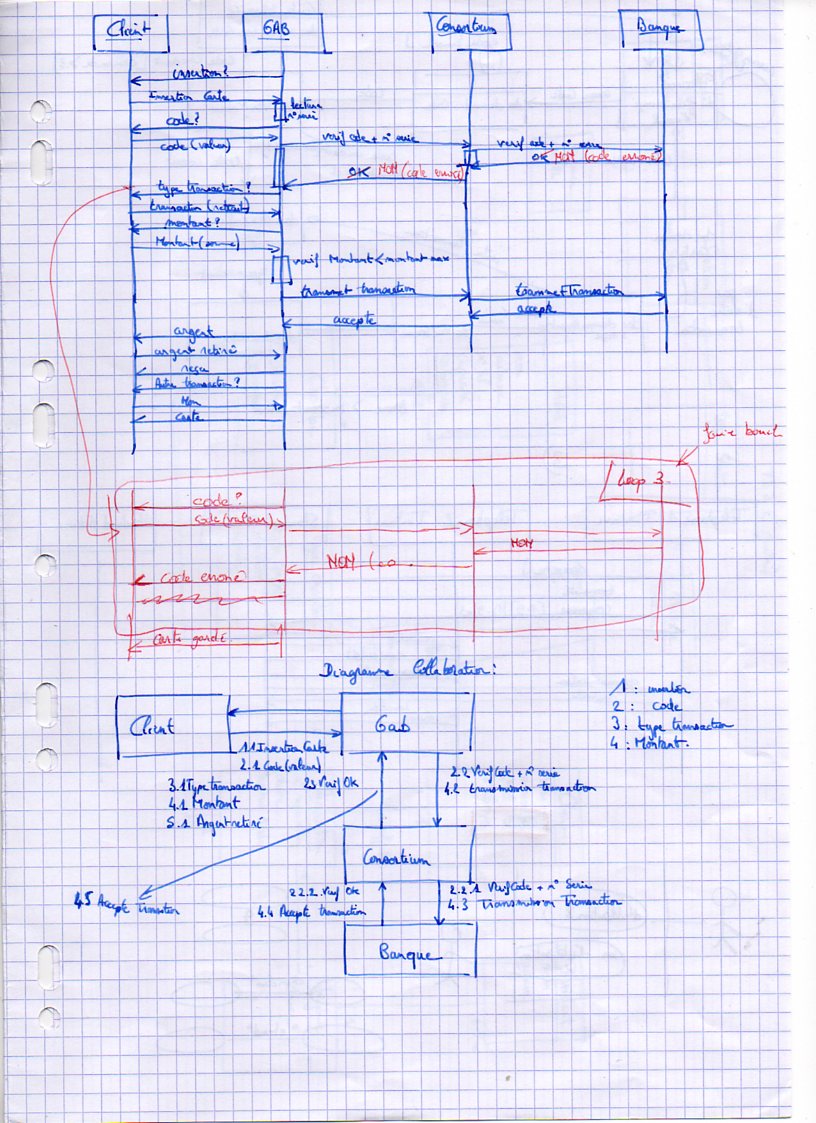 Client GAB Consortium Banque
insertion?
Insertion Carte
lecture
n° serie
code?
code (valeur)
verif code + n° serie
verif code + n° serie
OK NON (code erroné)
OK NON (code erroné)
type transaction?
transaction (retrait)
montant?
Montant (somme)
verif Montant < montant max
transmet transaction
transmet Transaction
accepte
accepte
argent
argent retiré
reçu
Autre transaction?
Non
carte
faire boucl
Loop 3
code?
code (valeur)
NON
NON (co...
code erroné
Carte gardé
Diagramme Collaboration:
1 : insertion
2 : code
3 : type transaction
4 : Montant.
Client
Gab
1.1 Insertion Carte
2.1 Code (valeur)
3.1 Type transaction
4.1 Montant
5.1 Argent retiré
2.3 Verif Ok
2.2 Verif Code + n° serie
4.2 transmission transaction
Consortium
4.5 Accepte Transaction
2.2.2. Verif Ok
4.4 Accepte transaction
2.2.1 Verif Code + n° Serie
4.3 Transmission Transaction
Banque